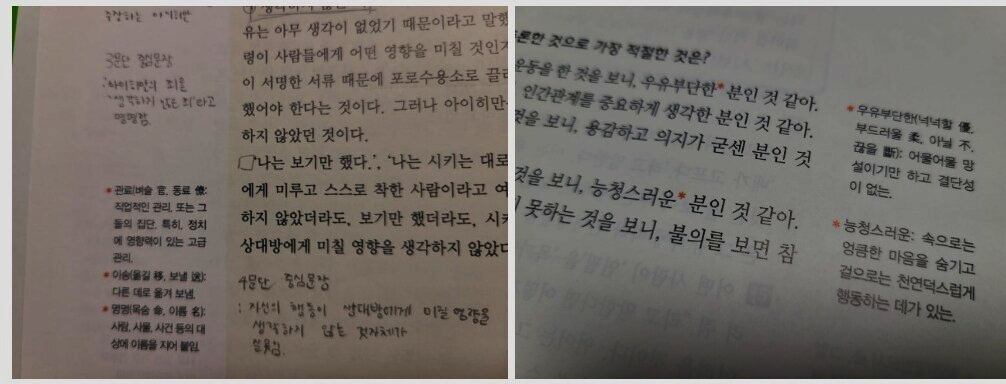 유는 아무 생각이 없었기 때문이라고 말했
령이 사람들에게 어떤 영향을 미칠 것인지
이 서명한 서류 때문에 포로수용소로 끌려
했어야 한다는 것이다. 그러나 아이히만
하지 않았던 것이다.
'나는 보기만 했다.', '나는 시키는 대로
에게 미루고 스스로 착한 사람이라고 여
하지 않았더라도, 보기만 했더라도, 시키
상대방에게 미칠 영향을 생각하지 않았다
3문단 중심문장
: 아이히만의 죄를
'생각하지 않은 죄'라고
명명함.
* 관료(벼슬 官, 동료 僚):
직업적인 관리. 또는 그
들의 집단. 특히, 정치
에 영향력이 있는 고급
관리.
* 이송(옮길 移, 보낼 送):
다른 데로 옮겨 보냄.
* 명명(목숨 命, 이름 名):
사람, 사물, 사건 등의 대
상에 이름을 지어 붙임.
4문단 중심문장
: 자신의 행동이 상대방에게 미칠 영향을
생각하지 않는 것자체가
론한 것으로 가장 적절한 것은?
운동을 한 것을 보니, 우유부단한* 분인 것 같아.
인간관계를 중요하게 생각한 분인 것 같아.
것을 보니, 용감하고 의지가 굳센 분인 것
것을 보니, 능청스러운* 분인 것 같아.
못하는 것을 보니, 불의를 보면 참
* 우유부단한(넉넉할 優,
부드러울 柔, 아닐 不,
끊을 斷): 어물어물 망
설이기만 하고 결단성
이 없는.
* 능청스러운: 속으로는
엉큼한 마음을 숨기고
겉으로는 천연덕스럽게
행동하는 데가 있는.